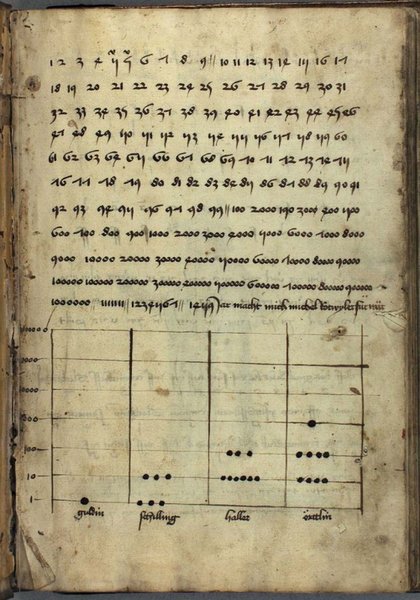 1 2 3 4 5 5 6 7 8 9 10 11 12 13 14 15 16 17
18 19 20 21 22 23 24 25 26 27 28 29 30 31
32 33 34 35 36 37 38 39 40 41 42 43 44 45 46
47 48 49 50 51 52 53 54 55 56 57 58 59 60
61 62 63 64 65 66 67 68 69 70 71 72 73 74 75
76 77 78 79 80 81 82 83 84 85 86 87 88 89 90 91
92 93 94 95 96 97 98 99 100
600 700 800 900 1000 2000 3000 4000 5000 6000 7000 8000
9000 10000 20000 30000 40000 50000 60000 70000 80000 90000
100000 200000 300000 400000 500000 600000 700000 800000 900000
1000000 1234567 Jar macht mich michel
100
10
1
guldin schilling haller örttlin